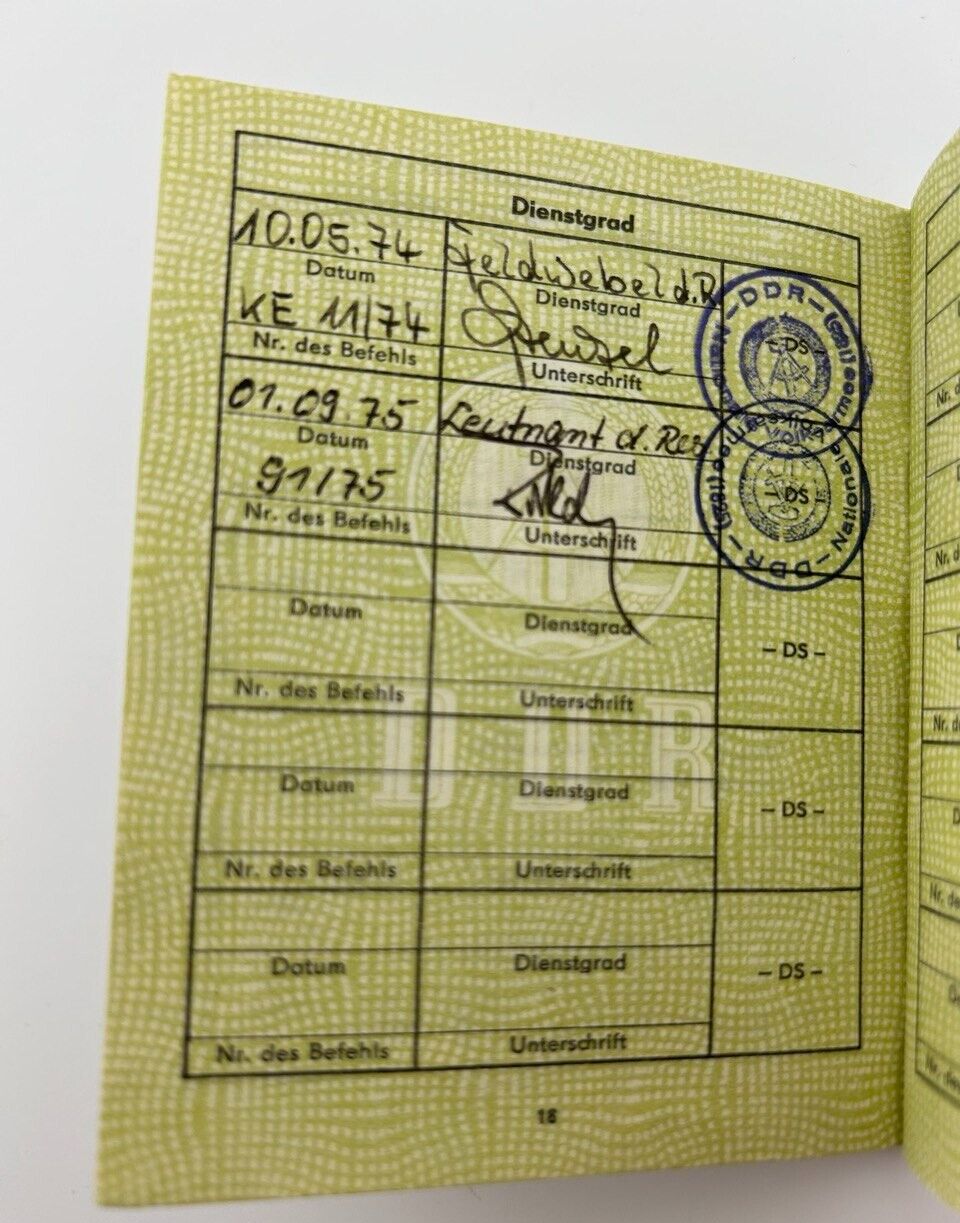 Dienstgrad
10.05.74 Feldwebel d.R.
Datum Dienstgrad
KE 11/74
Nr. des Befehls Unterschrift
– DS –
01.09.75 Leutnant d. Res
Datum Dienstgrad
91/75
Nr. des Befehls Unterschrift
– DS –
Datum Dienstgrad
– DS –
Nr. des Befehls Unterschrift
Datum Dienstgrad
– DS –
Nr. des Befehls Unterschrift
Datum Dienstgrad
– DS –
Nr. des Befehls Unterschrift
DDR
Nationale Volksarmee – DDR –
18